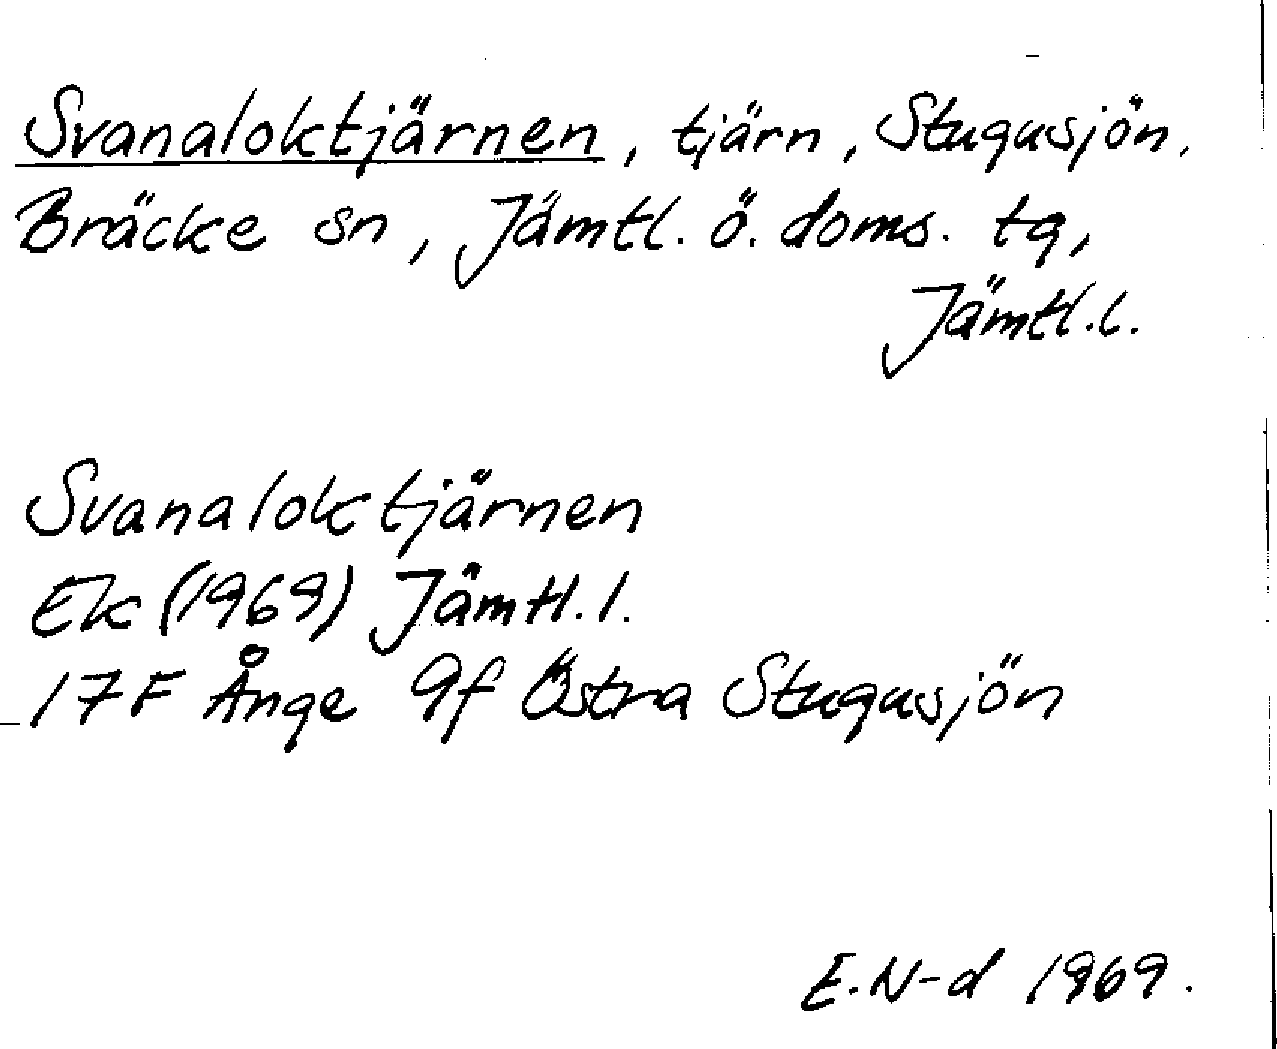 Svanaloktjärnen, tjärn, Stugusjön,
Bräcke sn, Jämtl. ö. doms. tg,
Jämtl.l.
Svanaloktjärnen
Ek (1969) Jämtl.l.
17F Ånge 9f Östra Stugusjön
E.N-d 1969.